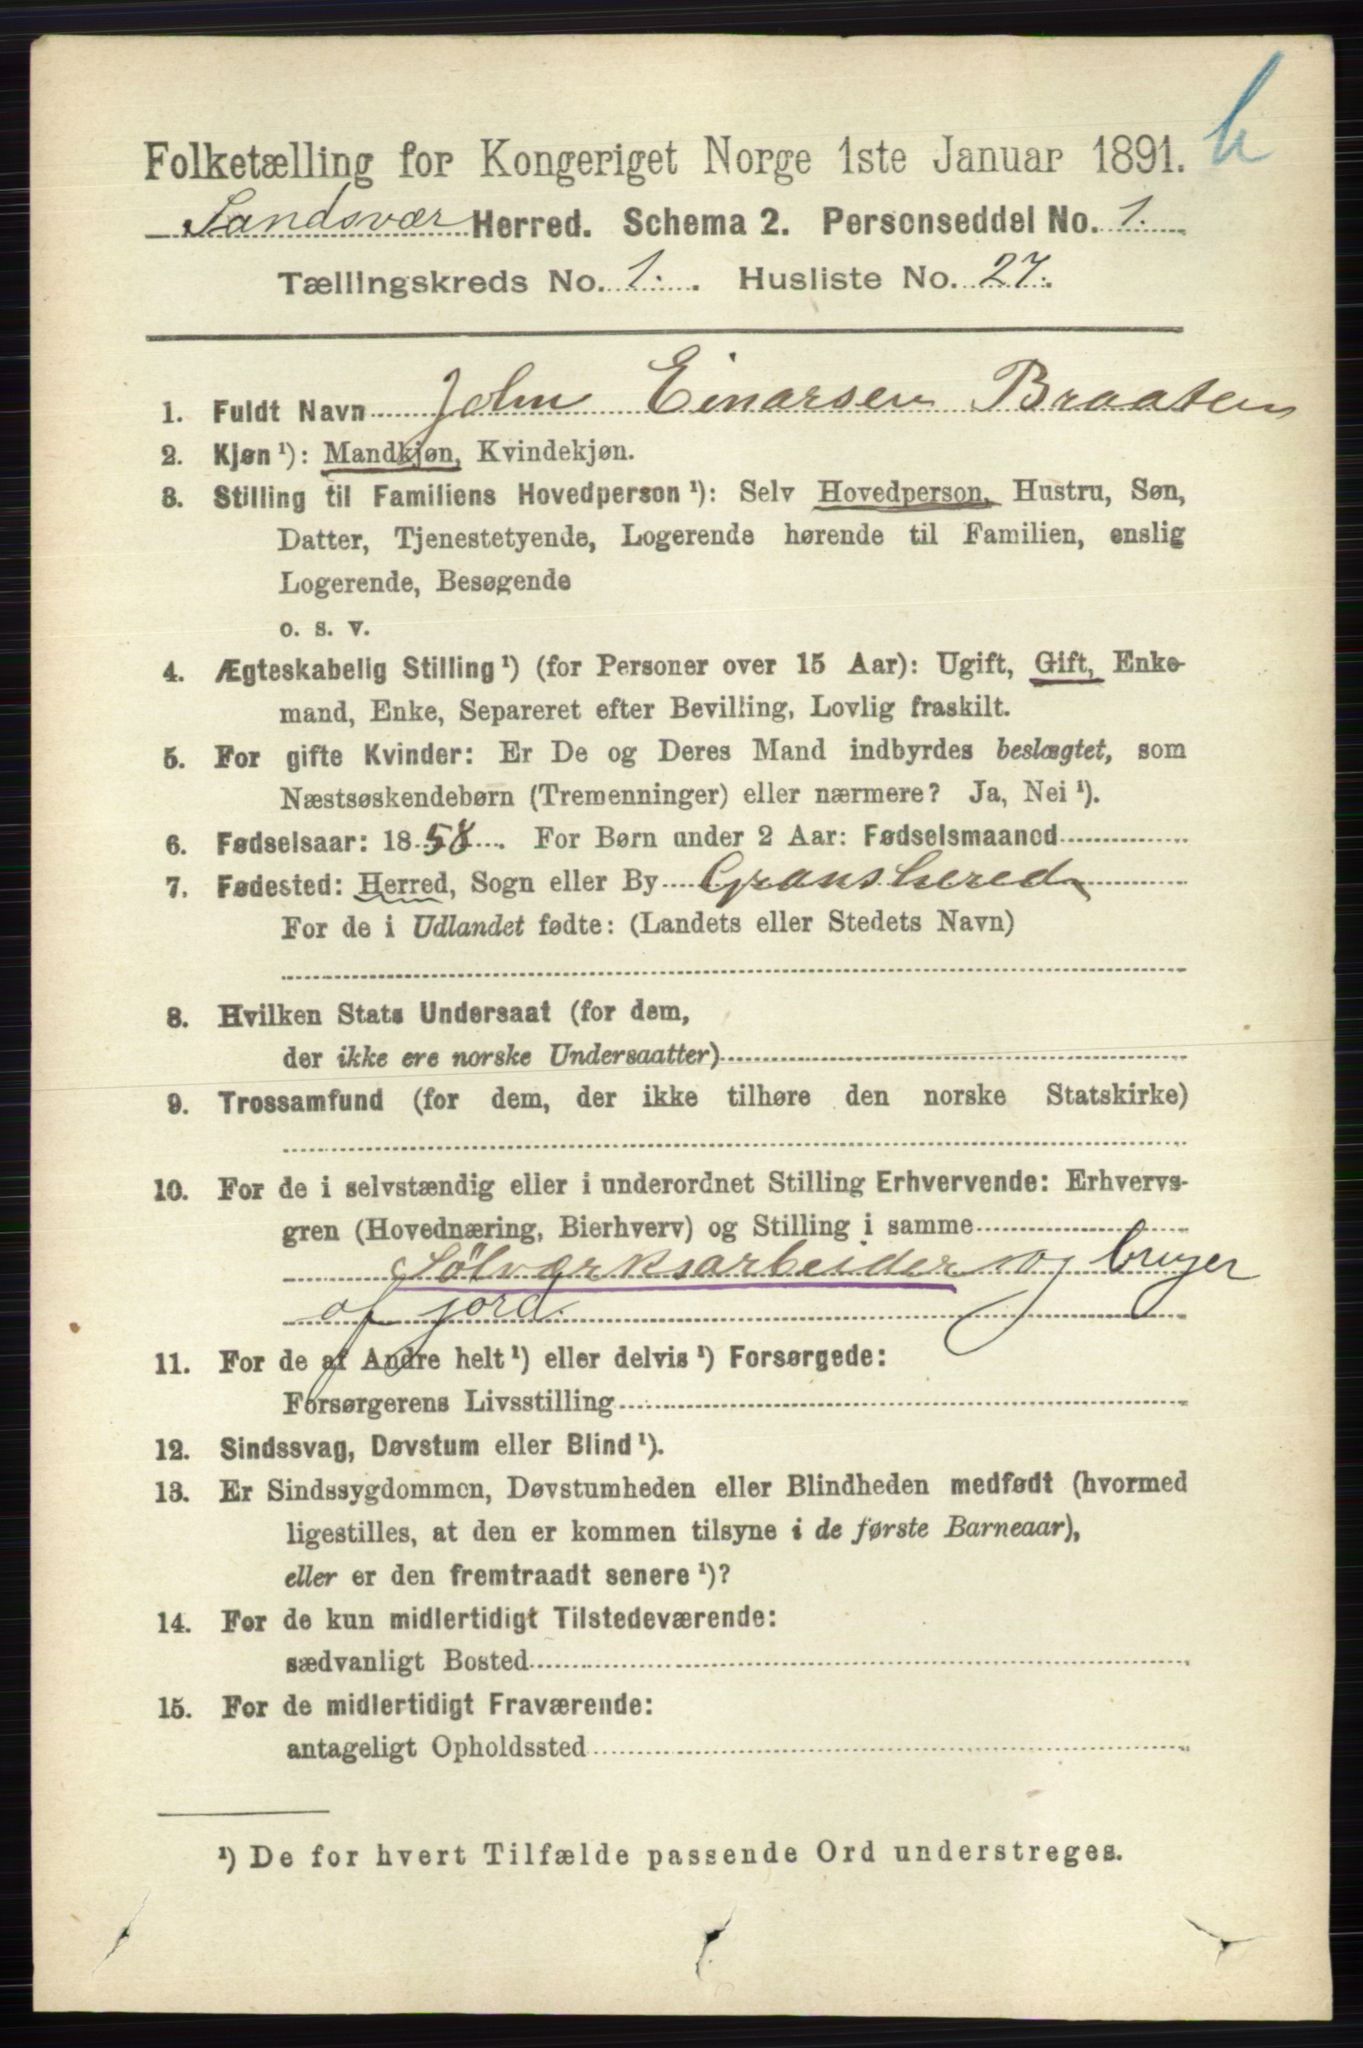 Folketælling for Kongeriget Norge 1ste Januar 1891. h
Sandsvær Herred. Schema 2. Personseddel No. 1.
Tællingskreds No. 1. Husliste No. 27.
1. Fuldt Navn John Einarsen Braaten
2. Kjøn ¹): Mandkjøn, Kvindekjøn.
3. Stilling til Familiens Hovedperson ¹): Selv Hovedperson, Hustru, Søn,
Datter, Tjenestetyende, Logerende hørende til Familien, enslig
Logerende, Besøgende
o. s. v.
4. Ægteskabelig Stilling ¹) (for Personer over 15 Aar): Ugift, Gift, Enke-
mand, Enke, Separeret efter Bevilling, Lovlig fraskilt.
5. For gifte Kvinder: Er De og Deres Mand indbyrdes beslægtet, som
Næstsøskendebørn (Tremenninger) eller nærmere? Ja, Nei ¹).
6. Fødselsaar: 1858. For Børn under 2 Aar: Fødselsmaaned
7. Fødested: Herred, Sogn eller By Gransherred
For de i Udlandet fødte: (Landets eller Stedets Navn)
8. Hvilken Stats Undersaat (for dem,
der ikke ere norske Undersaatter)
9. Trossamfund (for dem, der ikke tilhøre den norske Statskirke)
10. For de i selvstændig eller i underordnet Stilling Erhvervende: Erhvervs-
gren (Hovednæring, Bierhverv) og Stilling i samme
Sölværksarbeider og bruger
af jord.
11. For de af Andre helt ¹) eller delvis ¹) Forsørgede:
Forsørgerens Livsstilling
12. Sindssvag, Døvstum eller Blind ¹).
13. Er Sindssygdommen, Døvstumheden eller Blindheden medfødt (hvormed
ligestilles, at den er kommen tilsyne i de første Barneaar),
eller er den fremtraadt senere ¹)?
14. For de kun midlertidigt Tilstedeværende:
sædvanligt Bosted
15. For de midlertidigt Fraværende:
antageligt Opholdssted
¹) De for hvert Tilfælde passende Ord understreges.